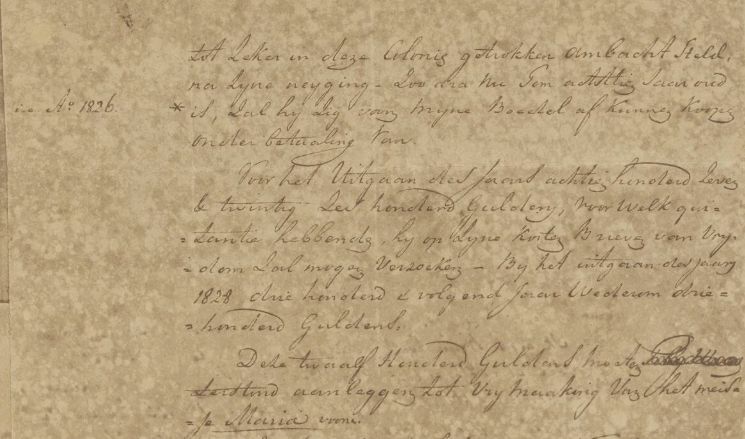 tot Zeker in deze Colonie getrokken Ambacht Held,
na Zyne neyging - Zoo dra nu Tom achttig Jaar oud
in Aº 1826. * is, Zal hy Zig van Myne Boedel af Kunnen Koopen
onder betaaling Van.
Voor het Uitgaan des Jaars achtien honderd Zeven
& twintig Zes honderd Guldens, voor welk qui=
=tantie hebbende, hy op Zyne Kosten Brieve van Vry=
=dom Zal mogen Verzoeken - By het uitgaan des Jaars
1828 drie honderd & volgend Jaar Wederom drie=
=honderd Guldens.
Deze twaalf Honderd Guldens moeten
aanleggen tot Vrymaaking Van het meis=
=je Maria voorn: